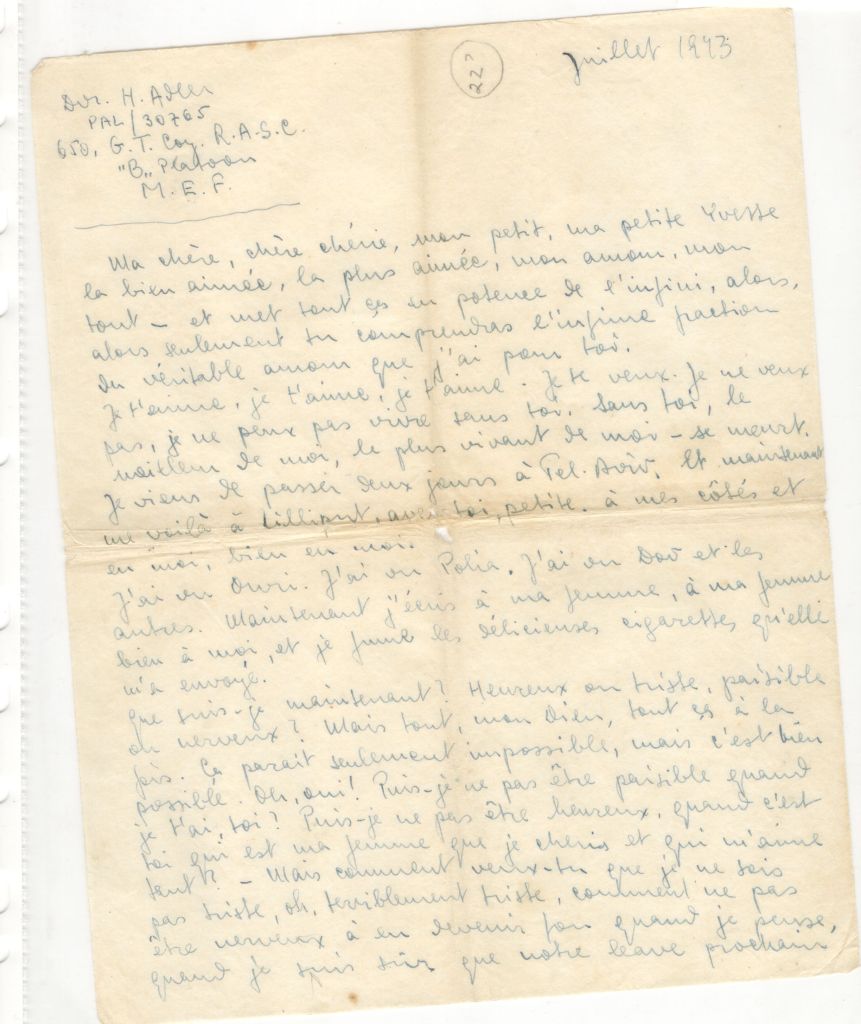 Juillet 1943
222
Dvr. H. Adler
PAL/30765
650, G.T. Coy. R.A.S.C.
"B" Platoon
M.E.F.
Ma chère, chère chérie, mon petit, ma petite Yvette
la bien aimée, la plus aimée, mon amour, mon
tout – et met tout ça en potence de l'infini, alors,
alors seulement tu comprendras l'infime fraction
du véritable amour que j'ai pour toi.
Je t'aime, je t'aime, je t'aime. Je te veux. Je ne veux
pas, je ne peux pas vivre sans toi. Sans toi, le
meilleur de moi, le plus vivant de moi – se meurt.
Je viens de passer deux jours à Tel-Aviv. Et maintenant
me voilà à Lilliput, avec toi, petite. à mes côtés et
en moi, bien en moi.
J'ai vu Ouri. J'ai vu Polia. J'ai vu Dov et les
autres. Maintenant j'écris à ma femme, à ma femme
bien à moi, et je fume les délicieuses cigarettes qu'elle
m'a envoyé.
Que suis-je maintenant? Heureux ou triste, paisible
ou nerveux? Mais tout, mon Dieu, tout ça à la
fois. Ça parait seulement impossible, mais c'est bien
possible. Oh, oui! Puis-je ne pas être paisible quand
je t'ai, toi? Puis-je ne pas être heureux, quand c'est
toi qui est ma femme que je cheris et qui m'aime
tant? – Mais comment veux-tu que je ne sois
pas triste, oh, terriblement triste, comment ne pas
être nerveux à en devenir fou quand je pense,
quand je suis sûr que notre leave prochain